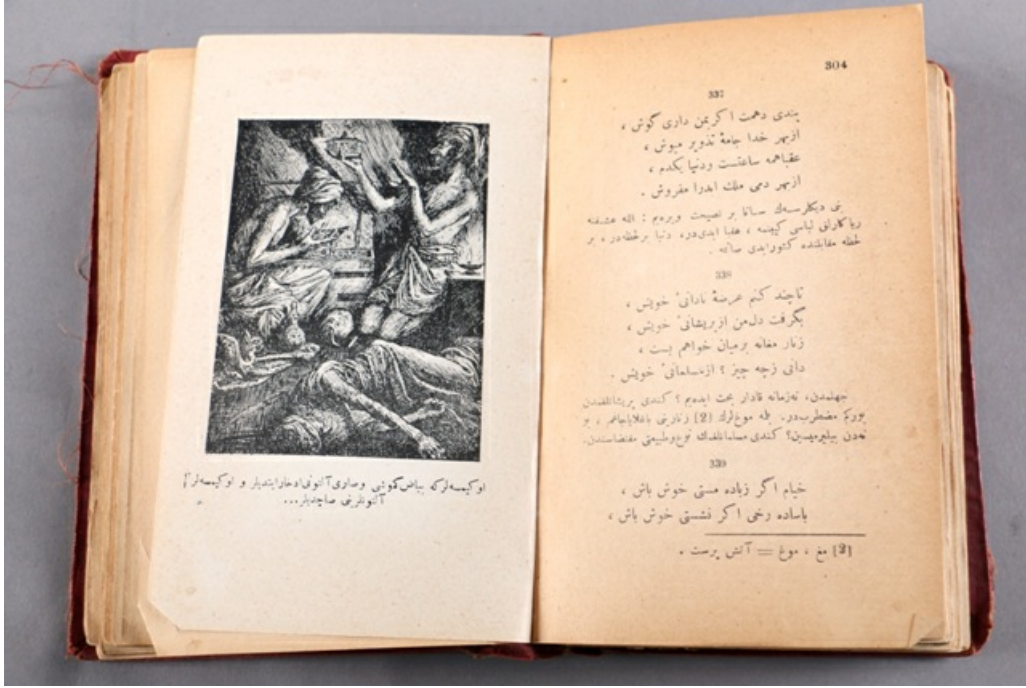 اوكيمسه‌لركه بياض كوشى وصارى آلتونى ادخار ايتديلر و اوكيمسه‌لركه
آلتونلرينى صاچديلر...
304
337
پندى دهمت اكر بمن دارى گوش ،
از بهر خدا جامهٔ تذوير مپوش ،
عقبا همه ساعتست ودنيا يكدم ،
از بهر دمى ملك ابدرا مفروش .
بنى ديكلرسه‌ك سانا بر نصيحت ويره‌يم : الله عشقنه
رياكارانى لباسى كييمه ، عقبا ابدى‌در، دنيا بر لحظه‌در ، بر
لحظه مقابلنده كشور ابدى صاتمه .
338
تاچند كنم عرضهٔ نادانىٔ خويش ،
بگرفت دل من از پريشانىٔ خويش ،
زنار مغانه بر ميان خواهم بست ،
دانى زچه چيز ؟ از مسلمانىٔ خويش .
جهلمدن، نه‌زمانه قادار بحث ايده‌يم ؟ كندى پريشانلغمدن
يوركم مضطرب‌در. بله موغ‌لرك [2] زنارينى باغلاياجاغم ، بو
نه‌دن بيليرميسين؟ كندى مسلمانلغمك نوع وطبيعتى مقتضاسندن.
339
خيام اگر زباده مستى خوش باش ،
باساده رخى اگر نشستى خوش باش ،
[2] مغ ، موغ = آتش پرست .